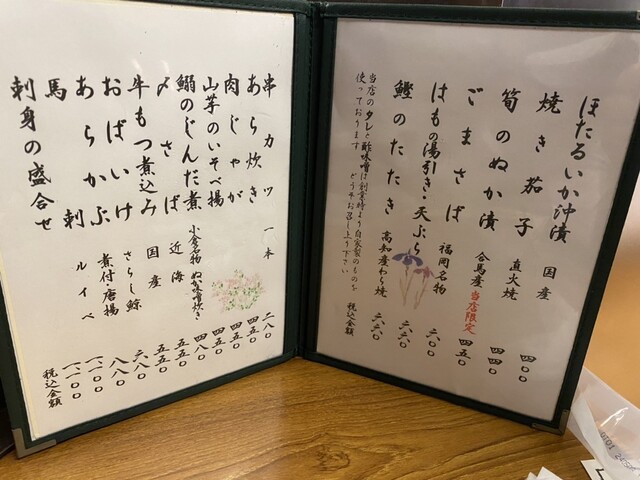 ほたるいか沖漬 国産 四〇〇
焼き茄子 直火焼 四四〇
筍のぬか漬 合馬産 当店限定 四五〇
ごまさば 福岡名物 六〇〇
はもの湯引き・天ぷら 六六〇
鰹のたたき 高知産わら焼 六六〇
当店のタレと酢味噌は創業時より自家製のものを
使っております どうぞお召し上り下さい
税込金額
串カツ 一本 二八〇
あら炊き 四五〇
肉じゃが 四五〇
山芋のいそべ揚
鰯のじんだ煮 小倉名物 ぬか味噌炊き 四八〇
〆さば 近海 五五〇
牛もつ煮込み 国産 五五〇
おばいけ さらし鯨 六八〇
あらかぶ 煮付・唐揚 八八〇
馬刺 ルイベ 一一〇〇
刺身の盛合せ 一一〇〇
税込金額